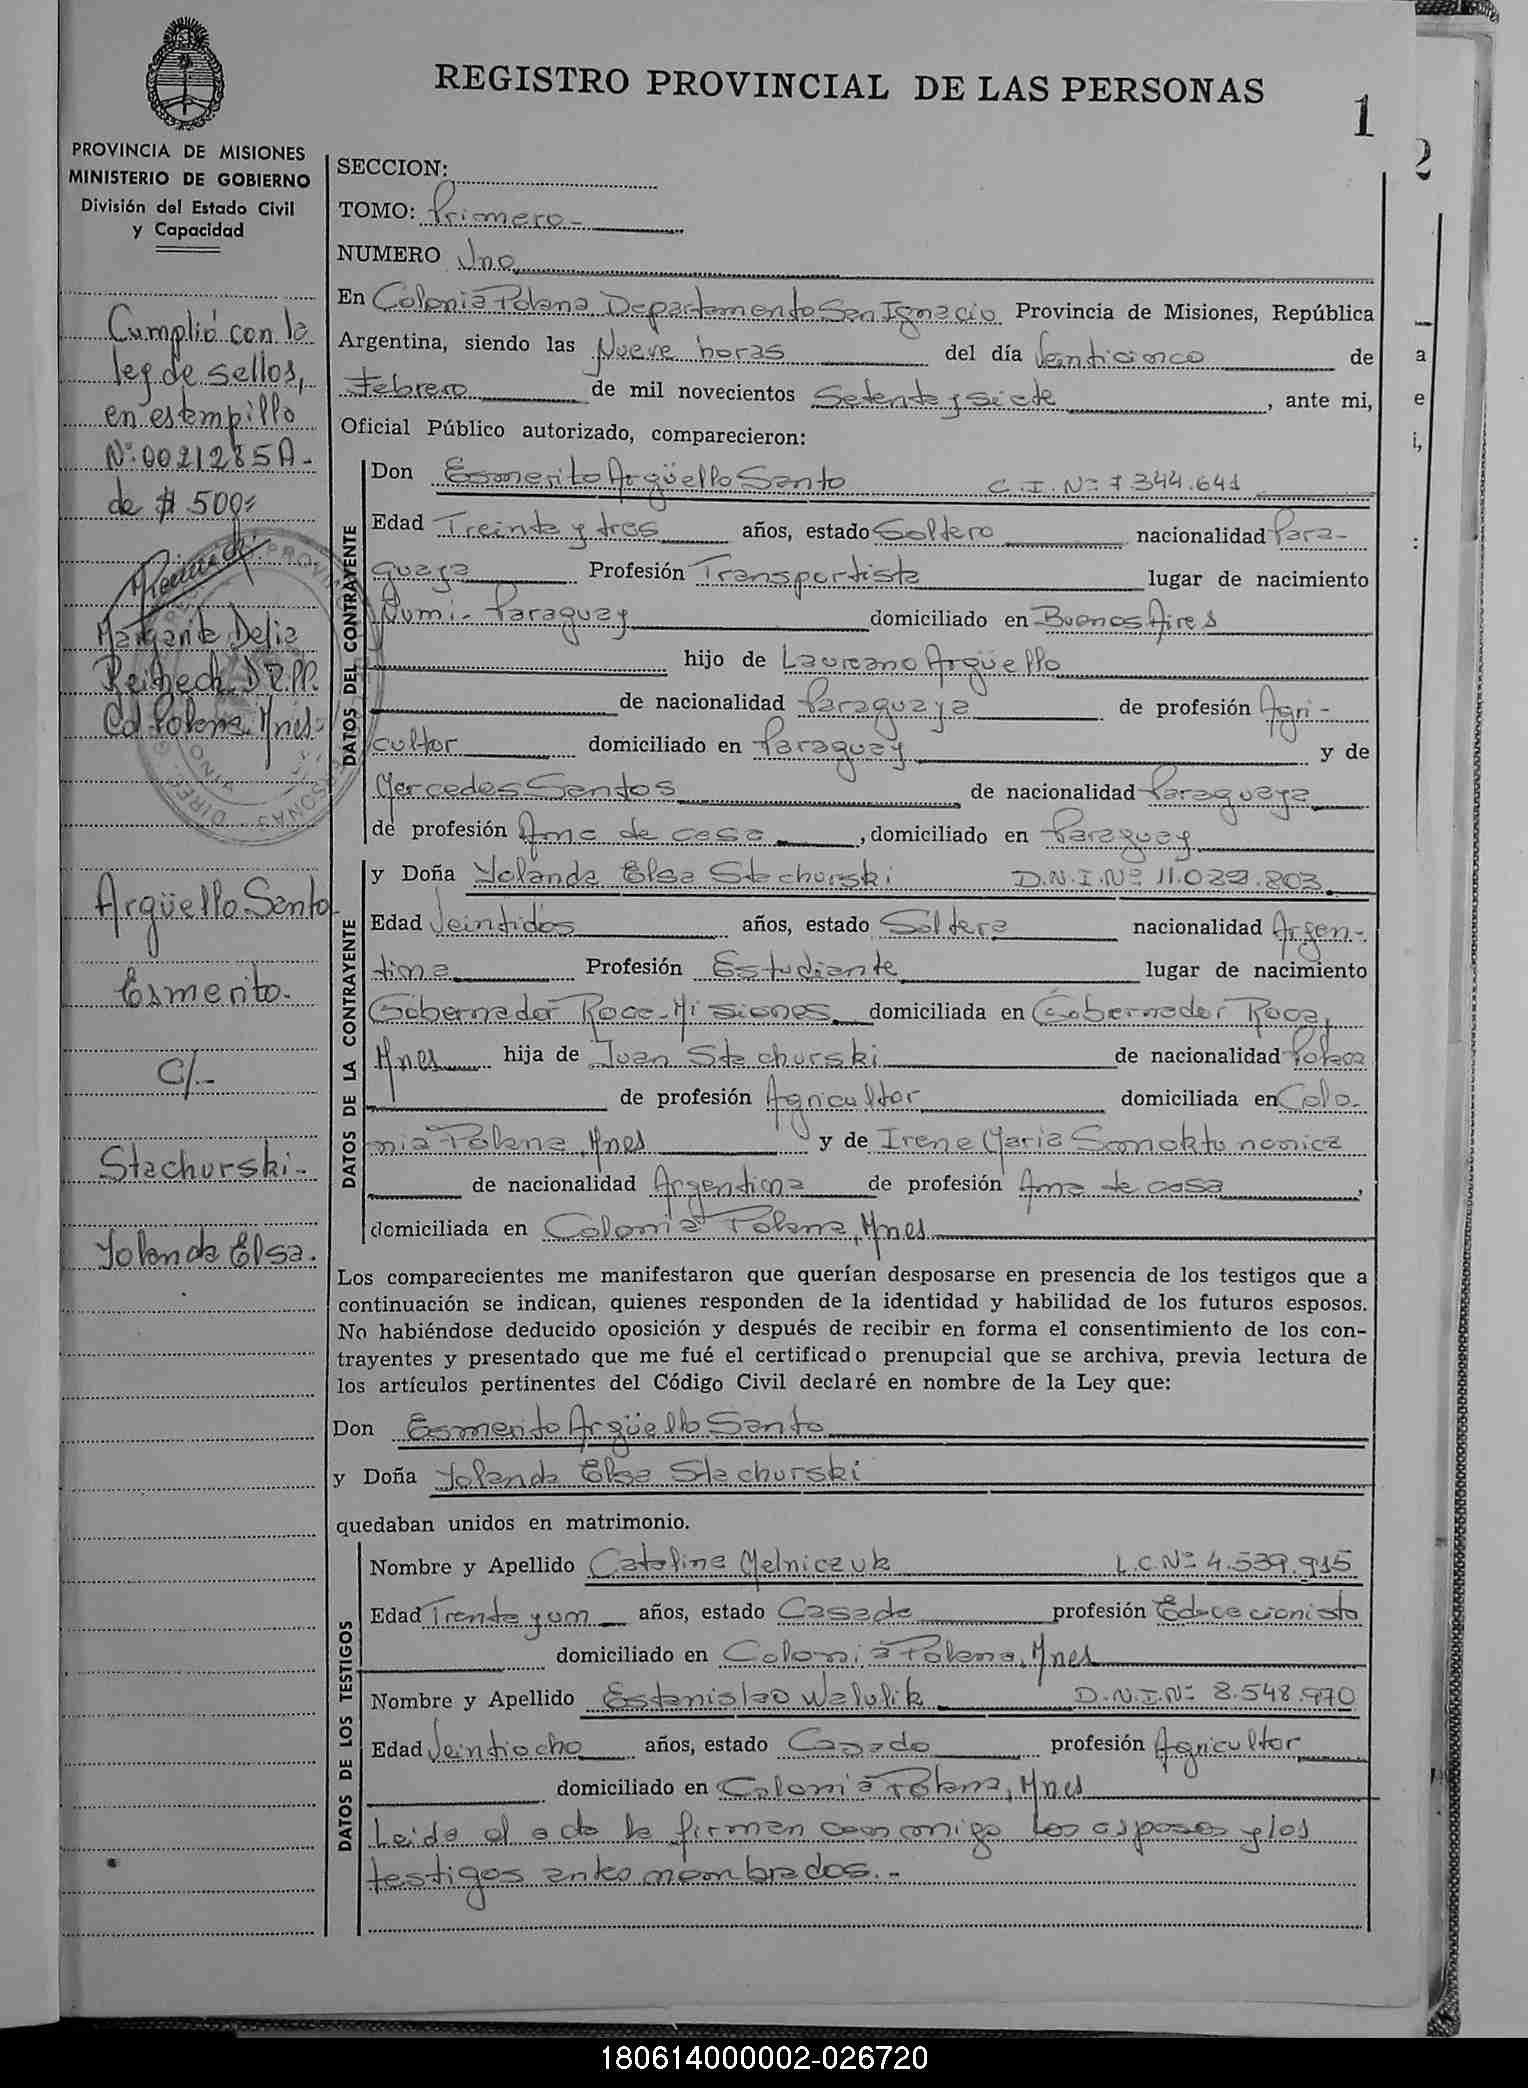 REGISTRO PROVINCIAL DE LAS PERSONAS
1
2
PROVINCIA DE MISIONES
MINISTERIO DE GOBIERNO
División del Estado Civil
y Capacidad
Cumplió con la
ley de sellos,
en estempillo
Nº 0021285A-
de $ 500=
Margarita Delia
D.R.P.P.
Col. Polana, Mnes-
Argüello Santo
Esmerito.
C/.-
Stachurski-
Yolanda Elsa.
SECCION:
TOMO: Primero-
NUMERO Uno
En Colonia Polana Departamento San Ignacio Provincia de Misiones, República
Argentina, siendo las Nueve horas del día Veinticinco de
Febrero de mil novecientos Setenta y siete, ante mi,
Oficial Público autorizado, comparecieron:
DATOS DEL CONTRAYENTE
Don Esmerito Argüello Santo C.I. Nº 7344.641
Edad Treinta y tres años, estado Soltero nacionalidad Para-
guaya Profesión Transportista lugar de nacimiento
Yumi- Paraguay domiciliado en Buenos Aires
hijo de Laureano Argüello
de nacionalidad Paraguaya de profesión Agri-
cultor domiciliado en Paraguay y de
Mercedes Santos de nacionalidad Paraguaya
de profesión Ama de casa, domiciliado en Paraguay
DATOS DE LA CONTRAYENTE
y Doña Yolanda Elsa Stachurski D.N.I. Nº 11.029.803
Edad Veintidós años, estado Soltera nacionalidad Argen-
tina Profesión Estudiante lugar de nacimiento
Gobernador Roca-Misiones domiciliada en Gobernador Roca,
Mnes hija de Juan Stachurski de nacionalidad Polaca
de profesión Agricultor domiciliada en Colo-
nia Polana, Mnes y de Irene Maria Samoktunonica
de nacionalidad Argentina de profesión Ama de casa,
domiciliada en Colonia Polana, Mnes
Los comparecientes me manifestaron que querían desposarse en presencia de los testigos que a
continuación se indican, quienes responden de la identidad y habilidad de los futuros esposos.
No habiéndose deducido oposición y después de recibir en forma el consentimiento de los con-
trayentes y presentado que me fué el certificado prenupcial que se archiva, previa lectura de
los artículos pertinentes del Código Civil declaré en nombre de la Ley que:
Don Esmerito Argüello Santo
y Doña Yolanda Elsa Stachurski
quedaban unidos en matrimonio.
DATOS DE LOS TESTIGOS
Nombre y Apellido Catalina Melniczuk L.C. Nº 4.539.915
Edad Trenta y un años, estado Casada profesión Educacionista
domiciliado en Colonia Polana, Mnes
Nombre y Apellido Estanislao Walulik D.N.I. Nº 8.548.970
Edad Veintiocho años, estado Casado profesión Agricultor
domiciliado en Colonia Polana, Mnes
Leida el acta la firman con migo los esposos y los
testigos antes nombrados.-
180614000002-026720